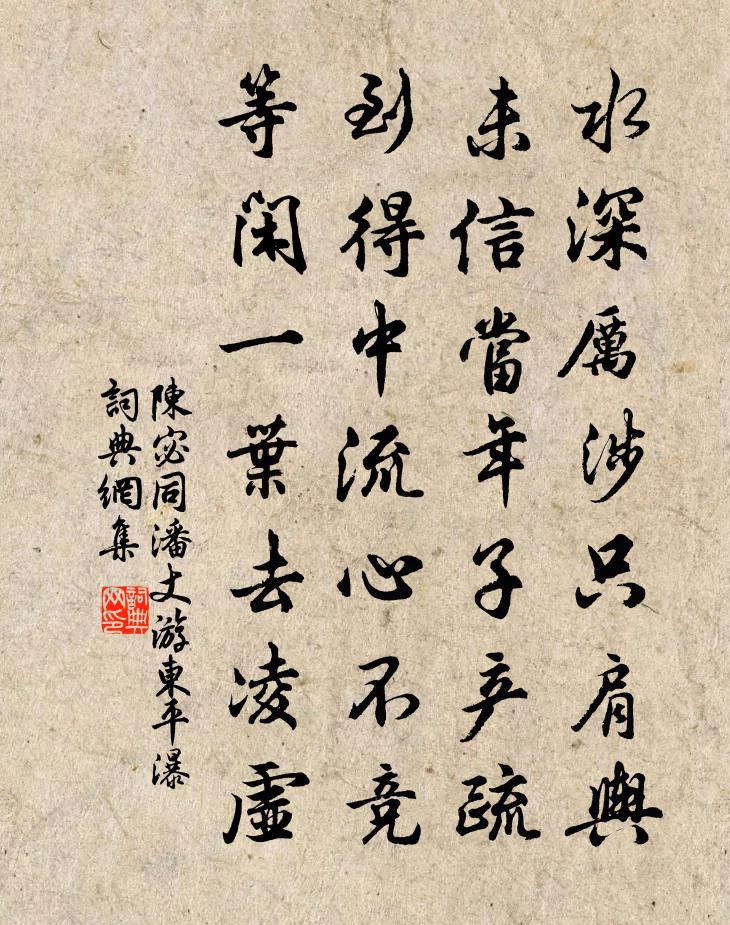 水深厲涉只肩輿
未信當年子产疏
到得中流心不竞
等閑一葉去凌虛
陳宓同潘丈游東平瀑
詞典網集
詞典网印